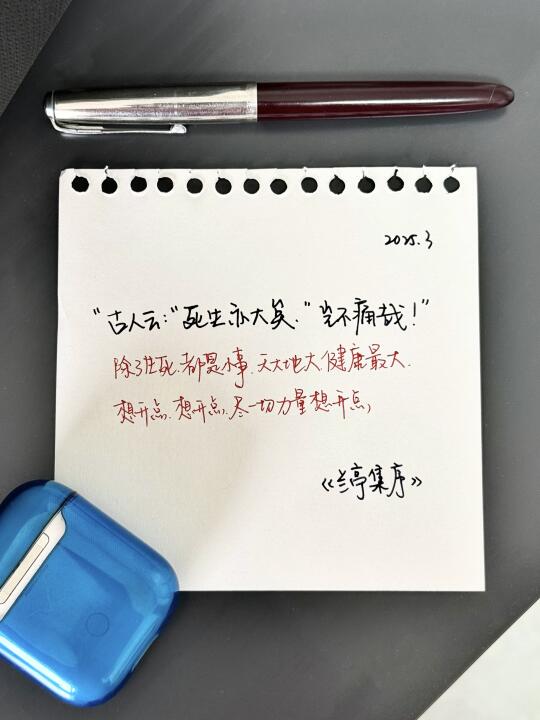 2025.3
“古人云：“死生亦大矣.”岂不痛哉！”
除了生死.都是小事.天大地大.健康最大.
想开点.想开点.尽一切力量想开点,
《兰亭集序》